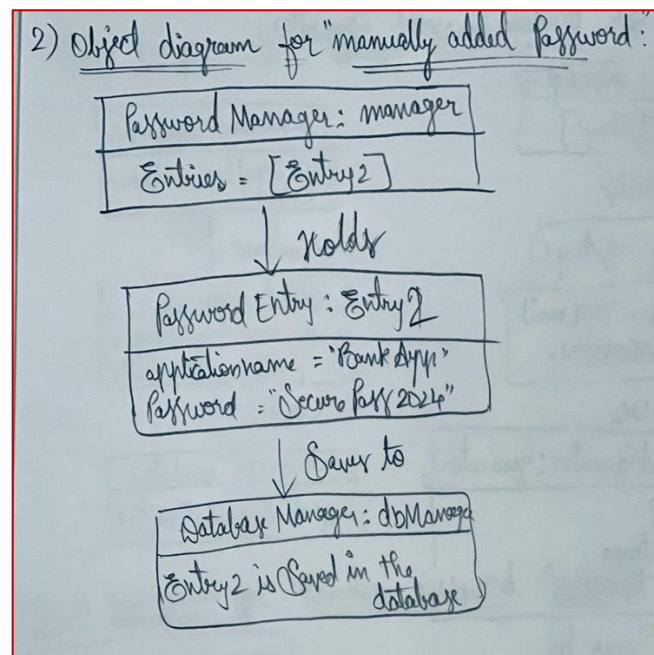 2) Object diagram for "manually added Password:"
Password Manager: manager
Entries = [Entry2]
Holds
Password Entry: Entry2
applicationname = "Bank App"
Password = "Secure Pass 2024"
Saves to
Database Manager: dbManage
Entry2 is Saved in the
database